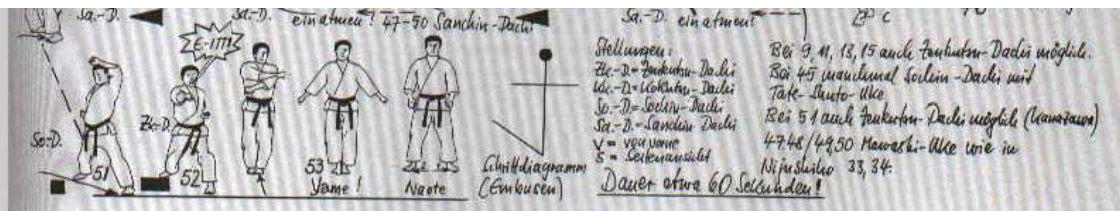 Sa.-D.
Sa.-D.
einatmen! 47-50 Sanchin-Dachi
Sa.-D. einatmen!
E-ITT!
So-D.
Zk-D.
51
52
53
Yame!
Naote
Schrittdiagramm
(Embusen)
Stellungen:
Zk.-D.= Zenkutsu-Dachi
Kk.-D.= Kokutsu-Dachi
So.-D.= Sochin-Dachi
Sa.-D.= Sanchin-Dachi
V = von vorne
S = Seitenansicht
Dauer etwa 60 Sekunden!
Bei 9, 11, 13, 15 auch Zenkutsu-Dachi möglich.
Bei 45 manchmal Sochin-Dachi mit
Tate-Shuto-Uke
Bei 51 auch Zenkutsu-Dachi möglich (Kanazawa)
47,48/49,50 Mawashi-Uke wie in
Nijushiho 33,34.